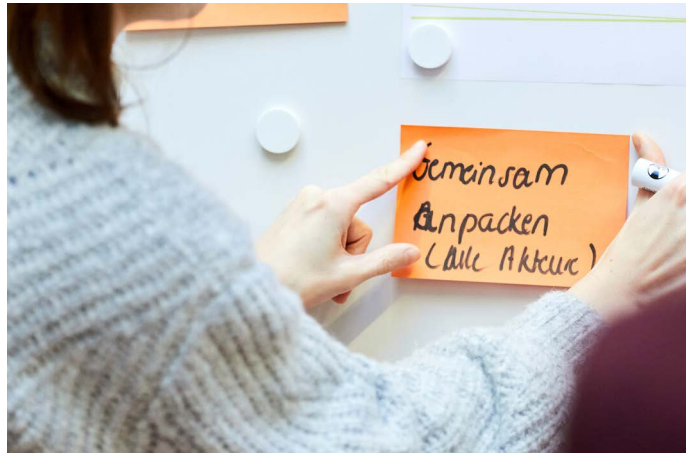 Gemeinsam
Anpacken
(Alle Akteure)